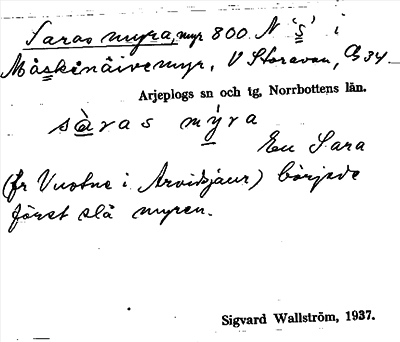 Saras myra, myr 800 N 's' i
Måskinäivemyr, V Storavan, Cb 34
Arjeplogs sn och tg, Norrbottens län.
sàras mýra
En Sara
(fr Vuotne i Arvidsjaur) började
först slå myren.
Sigvard Wallström, 1937.